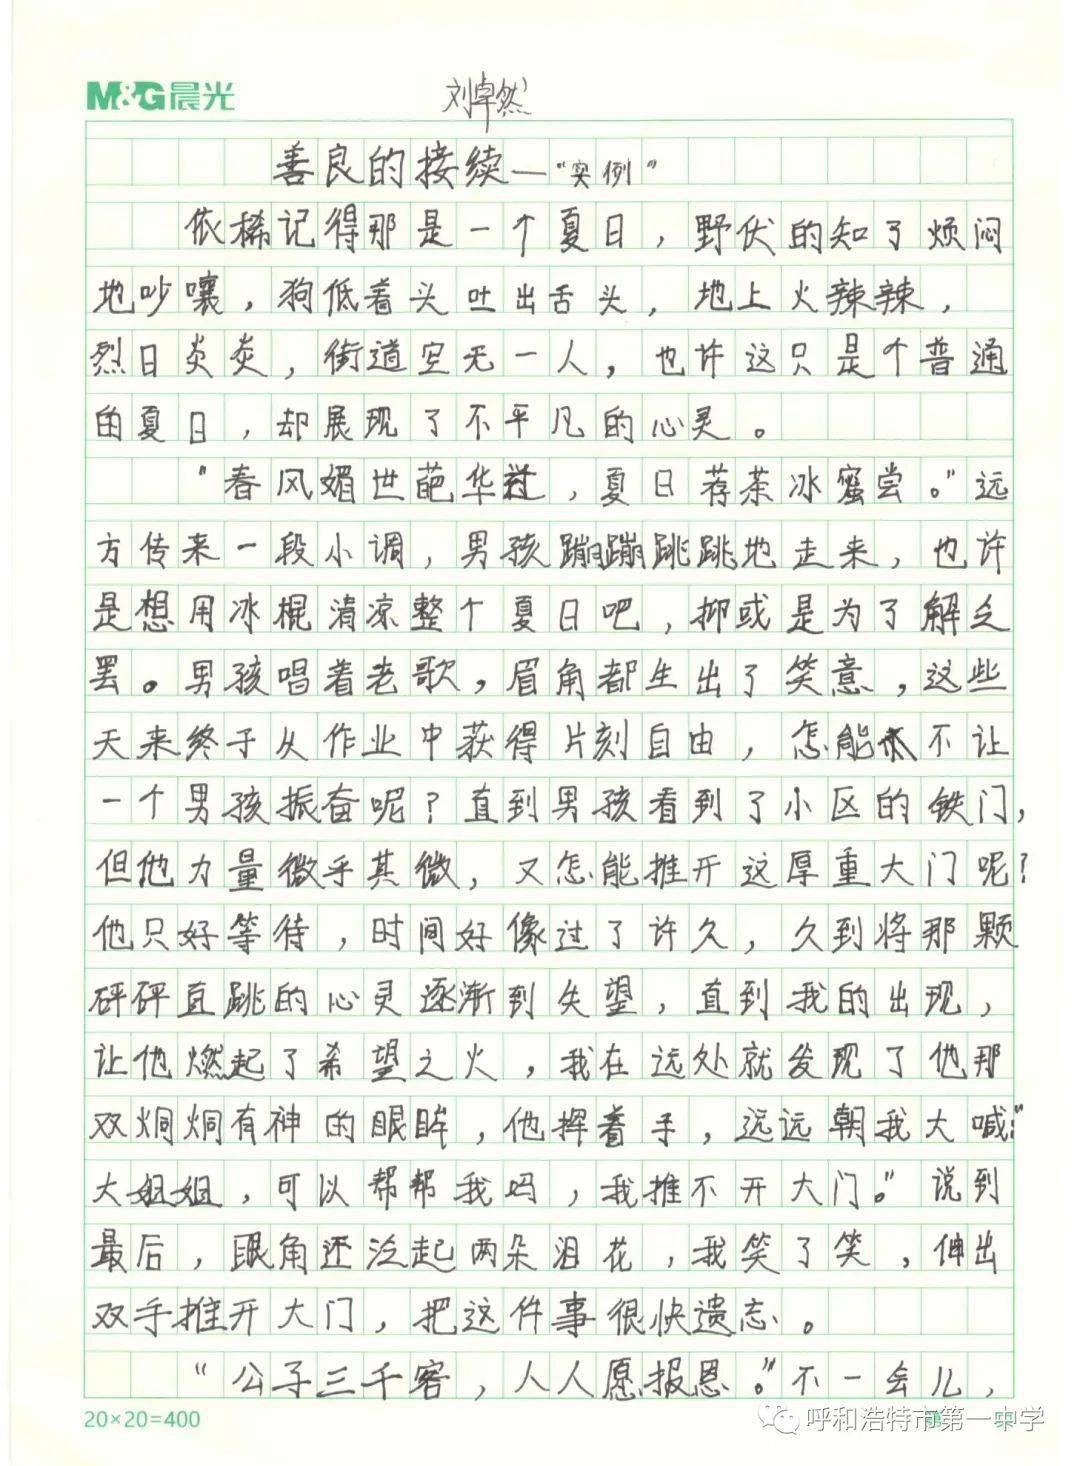 M&G晨光
刘卓然
善良的接续—“实例”
依稀记得那是一个夏日，野伏的知了烦闷
地吵嚷，狗低着头吐出舌头，地上火辣辣，
烈日炎炎，街道空无一人，也许这只是个普通
的夏日，却展现了不平凡的心灵。
“春风媚世葩华过，夏日荐茶冰蜜尝。”远
方传来一段小调，男孩蹦蹦跳跳地走来，也许
是想用冰棍清凉整个夏日吧，抑或是为了解乏
罢。男孩唱着老歌，眉角都生出了笑意，这些
天来终于从作业中获得片刻自由，怎能不让
一个男孩振奋呢？直到男孩看到了小区的铁门，
但他力量微乎其微，又怎能推开这厚重大门呢？
他只好等待，时间好像过了许久，久到将那颗
砰砰直跳的心灵逐渐到失望，直到我的出现，
让他燃起了希望之火，我在远处就发现了他那
双炯炯有神的眼眸，他挥着手，远远朝我大喊：“
大姐姐，可以帮帮我吗，我推不开大门。”说到
最后，眼角还泛起两朵泪花，我笑了笑，伸出
双手推开大门，把这件事很快遗忘。
“公子三千客，人人愿报恩。”不一会儿，
20×20=400
呼和浩特市第一中学